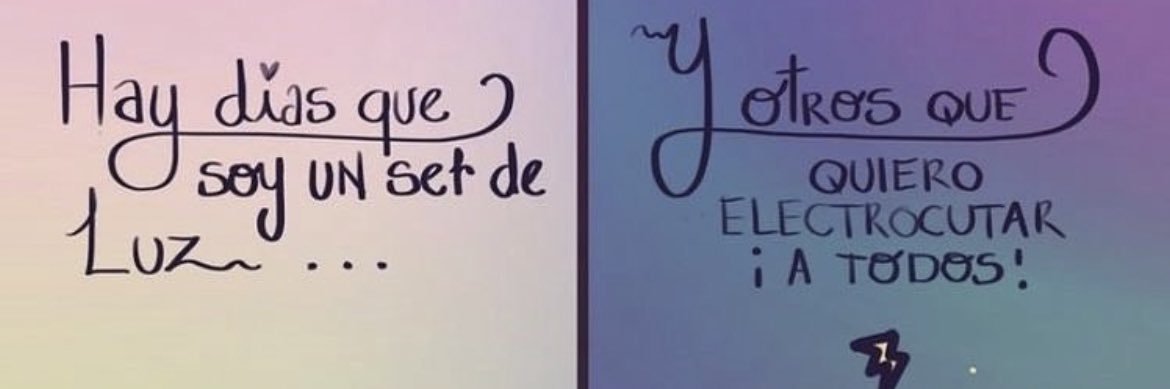 Hay dias que
soy UN set de
Luz ...
Y otros que
QUIERO
ELECTROCUTAR
¡A TODOS!